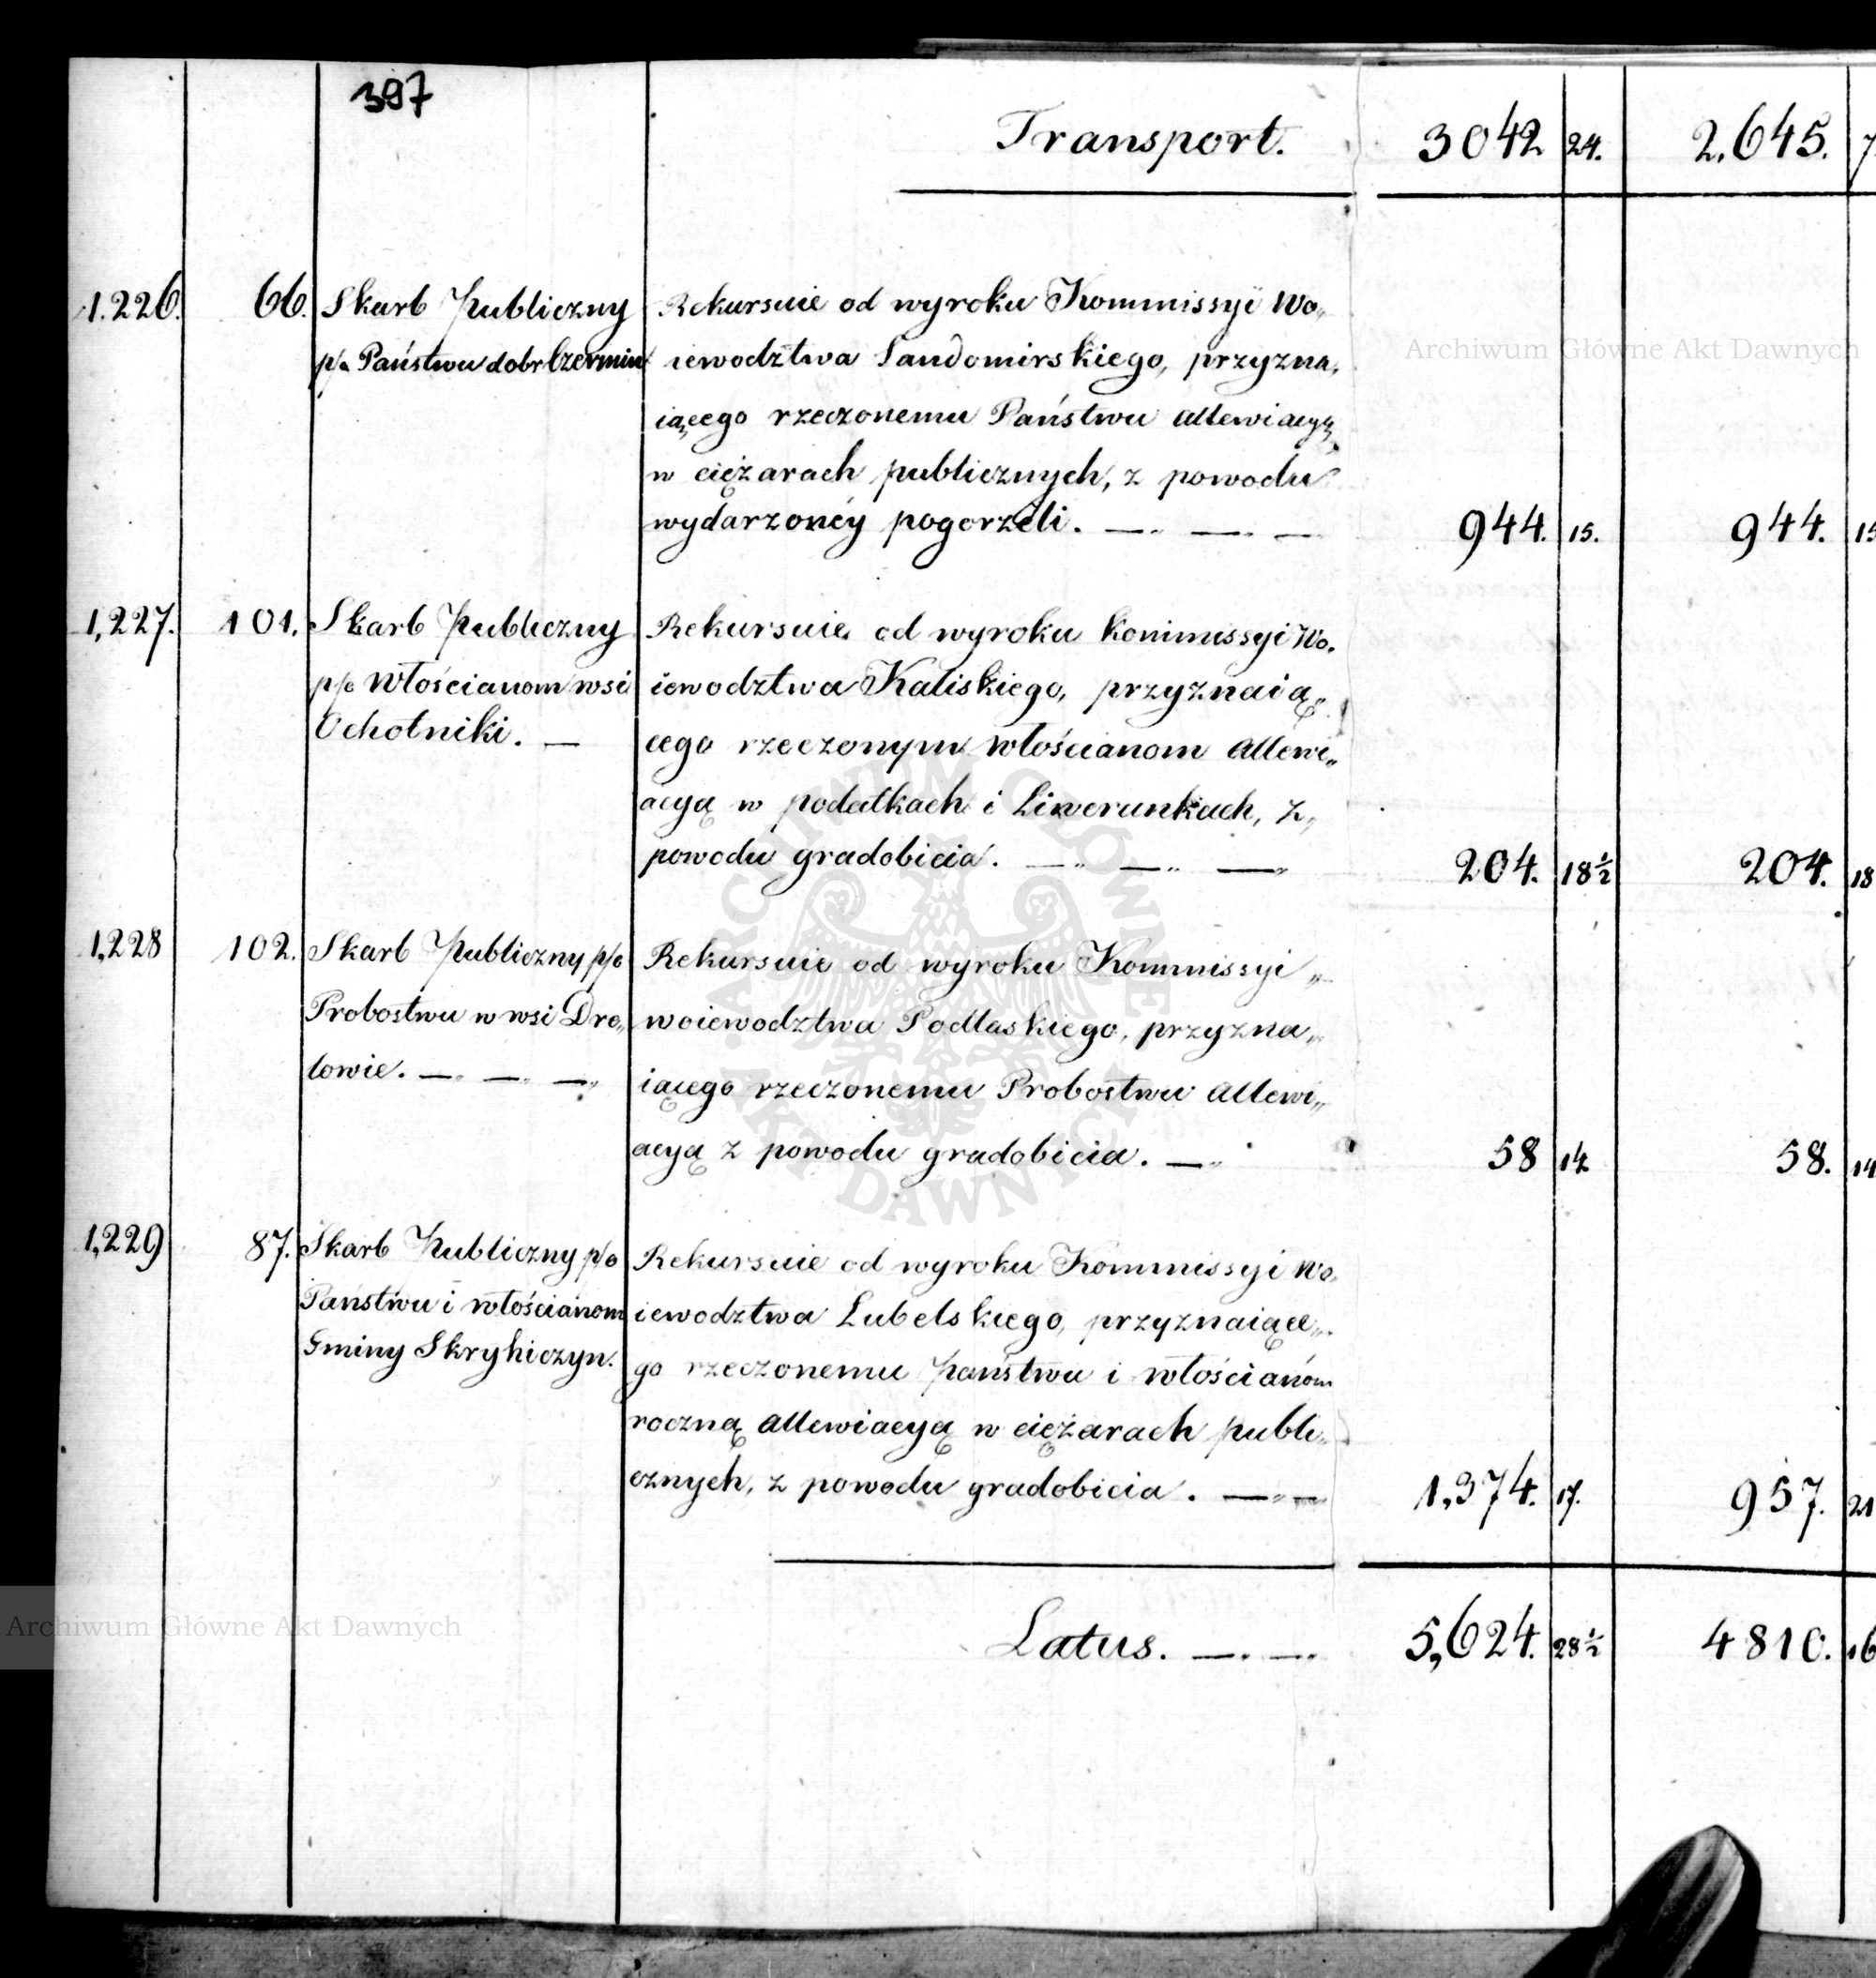 397
Transport. 3042 24. 2,645. 7
1.226. 66. Skarb Publiczny
p/o Państwu dobr Czermin
Rekursuie od wyroku Kommissyi Wo„
iewodztwa Sandomirskiego, przyzna„
iącego rzeczonemu Państwu allewiacyą
w ciężarach publicznych, z powodu
wydarzonéy pogorzeli. — — — 944. 15. 944. 15
1,227. 101. Skarb Publiczny
p/o Włościanom wsi
Ochotniki. —
Rekursuie od wyroku Kommissyi Wo„
iewodztwa Kaliskiego, przyznaią„
cego rzeczonym włościanom allewi„
acyą w podatkach i Liwerunkach, z„
powodu gradobicia. — — — 204. 18½ 204. 18
1,228 102. Skarb Publiczny p/o
Probostwu w wsi Dre„
lowie. — — —
Rekursuie od wyroku Kommissyi „
woiewodztwa Podlaskiego, przyzna„
iącego rzeczonemu Probostwu allewi„
acyą z powodu gradobicia. — 58 14 58. 14
1,229 87. Skarb Publiczny p/o
Państwu i włościanom
Gminy Skryhiczyn.
Rekursuie od wyroku Kommissyi Wo„
iewodztwa Lubelskiego, przyznaiące„
go rzeczonemu Państwu i włościanom
roczną allewiacyą w ciężarach publi„
cznych, z powodu gradobicia. — — 1,374. 17. 957. 21
Latus. — — 5,624. 28½ 4810. 16
Archiwum Główne Akt Dawnych
Archiwum Główne Akt Dawnych
ARCHIWUM GŁÓWNE AKT DAWNYCH